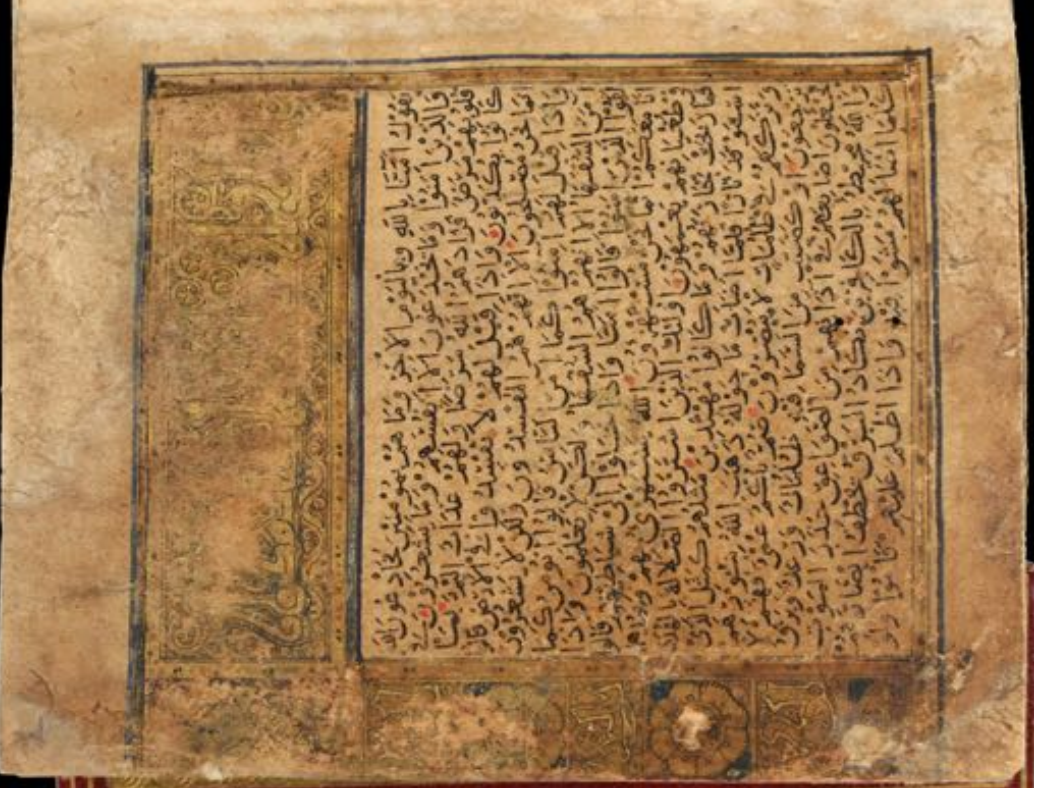 يقول امنا بالله وباليوم الاخر وما هم بمؤمنين يخادعون الله
والذين امنوا وما يخدعون الا انفسهم وما يشعرون في
قلوبهم مرض فزادهم الله مرضا ولهم عذاب اليم بما
كانوا يكذبون واذا قيل لهم لا تفسدوا في الارض قالوا
انما نحن مصلحون الا انهم هم المفسدون ولكن لا يشعرون
واذا قيل لهم امنوا كما امن الناس قالوا انؤمن كما
امن السفها الا انهم هم السفها ولكن لا يعلمون واذا
لقوا الذين امنوا قالوا امنا واذا خلوا الى شياطينهم قالوا
انا معكم انما نحن مستهزون الله يستهزئ بهم ويمدهم
في طغيانهم يعمهون اولئك الذين اشتروا الضلالة بالهدى
فما ربحت تجارتهم وما كانوا مهتدين مثلهم كمثل الذي
استوقد نارا فلما اضات ما حوله ذهب الله بنورهم
وتركهم في ظلمات لا يبصرون صم بكم عمي فهم لا
يرجعون او كصيب من السما فيه ظلمات ورعد وبرق
يجعلون اصابعهم في اذانهم من الصواعق حذر الموت
والله محيط بالكافرين يكاد البرق يخطف ابصارهم
كلما اضا لهم مشوا فيه واذا اظلم عليهم قاموا ولو